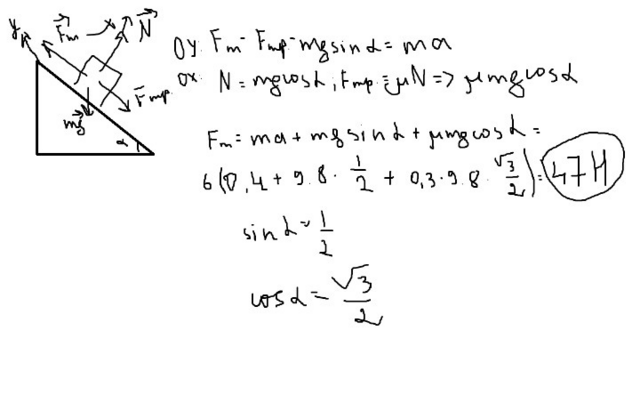 y F⃗т x N⃗
F⃗тр
mg⃗ α
Оу: Fт - Fтр - mgsinα = ma
Ох: N = mgcosα; Fтр = μN => μmgcosα
Fт = ma + mgsinα + μmgcosα =
6(0,4 + 9.8 · 1/2 + 0,3 · 9.8 · √3/2) = 47Н
sinα = 1/2
cosα = √3/2